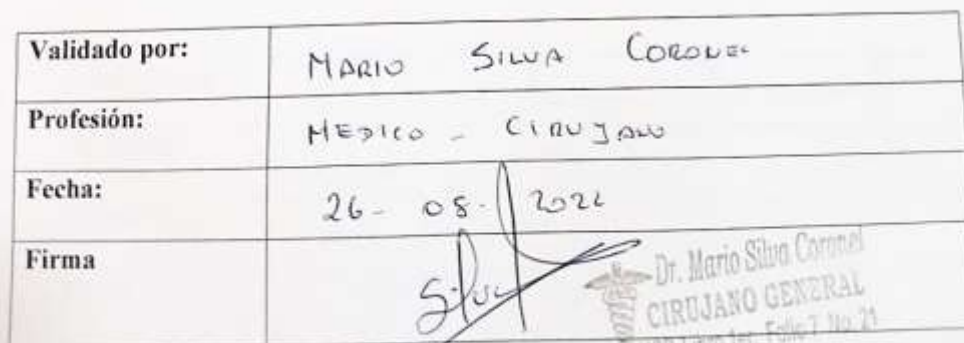 Validado por: MARIO SILVA CORONEL
Profesión: MEDICO - CIRUJANO
Fecha: 26 - 08 - 2022
Firma Silva
Dr. Mario Silva Coronel
CIRUJANO GENERAL
Folio 7 No. 21